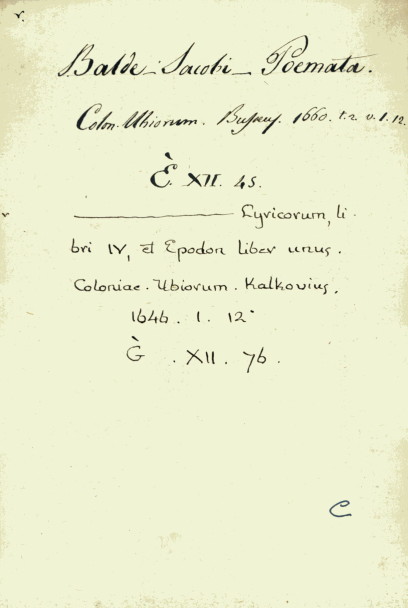 v.
Balde Jacobi Poemata.
Colon. Ubiorum. Busæus. 1660. t. 2. v. 1. 12.
È. XII. 45.
——— Lyricorum, li-
bri IV, et Epodon liber unus.
Coloniae. Ubiorum. Kalkovius.
1646. 1. 12°
G̀. XII. 76.
C